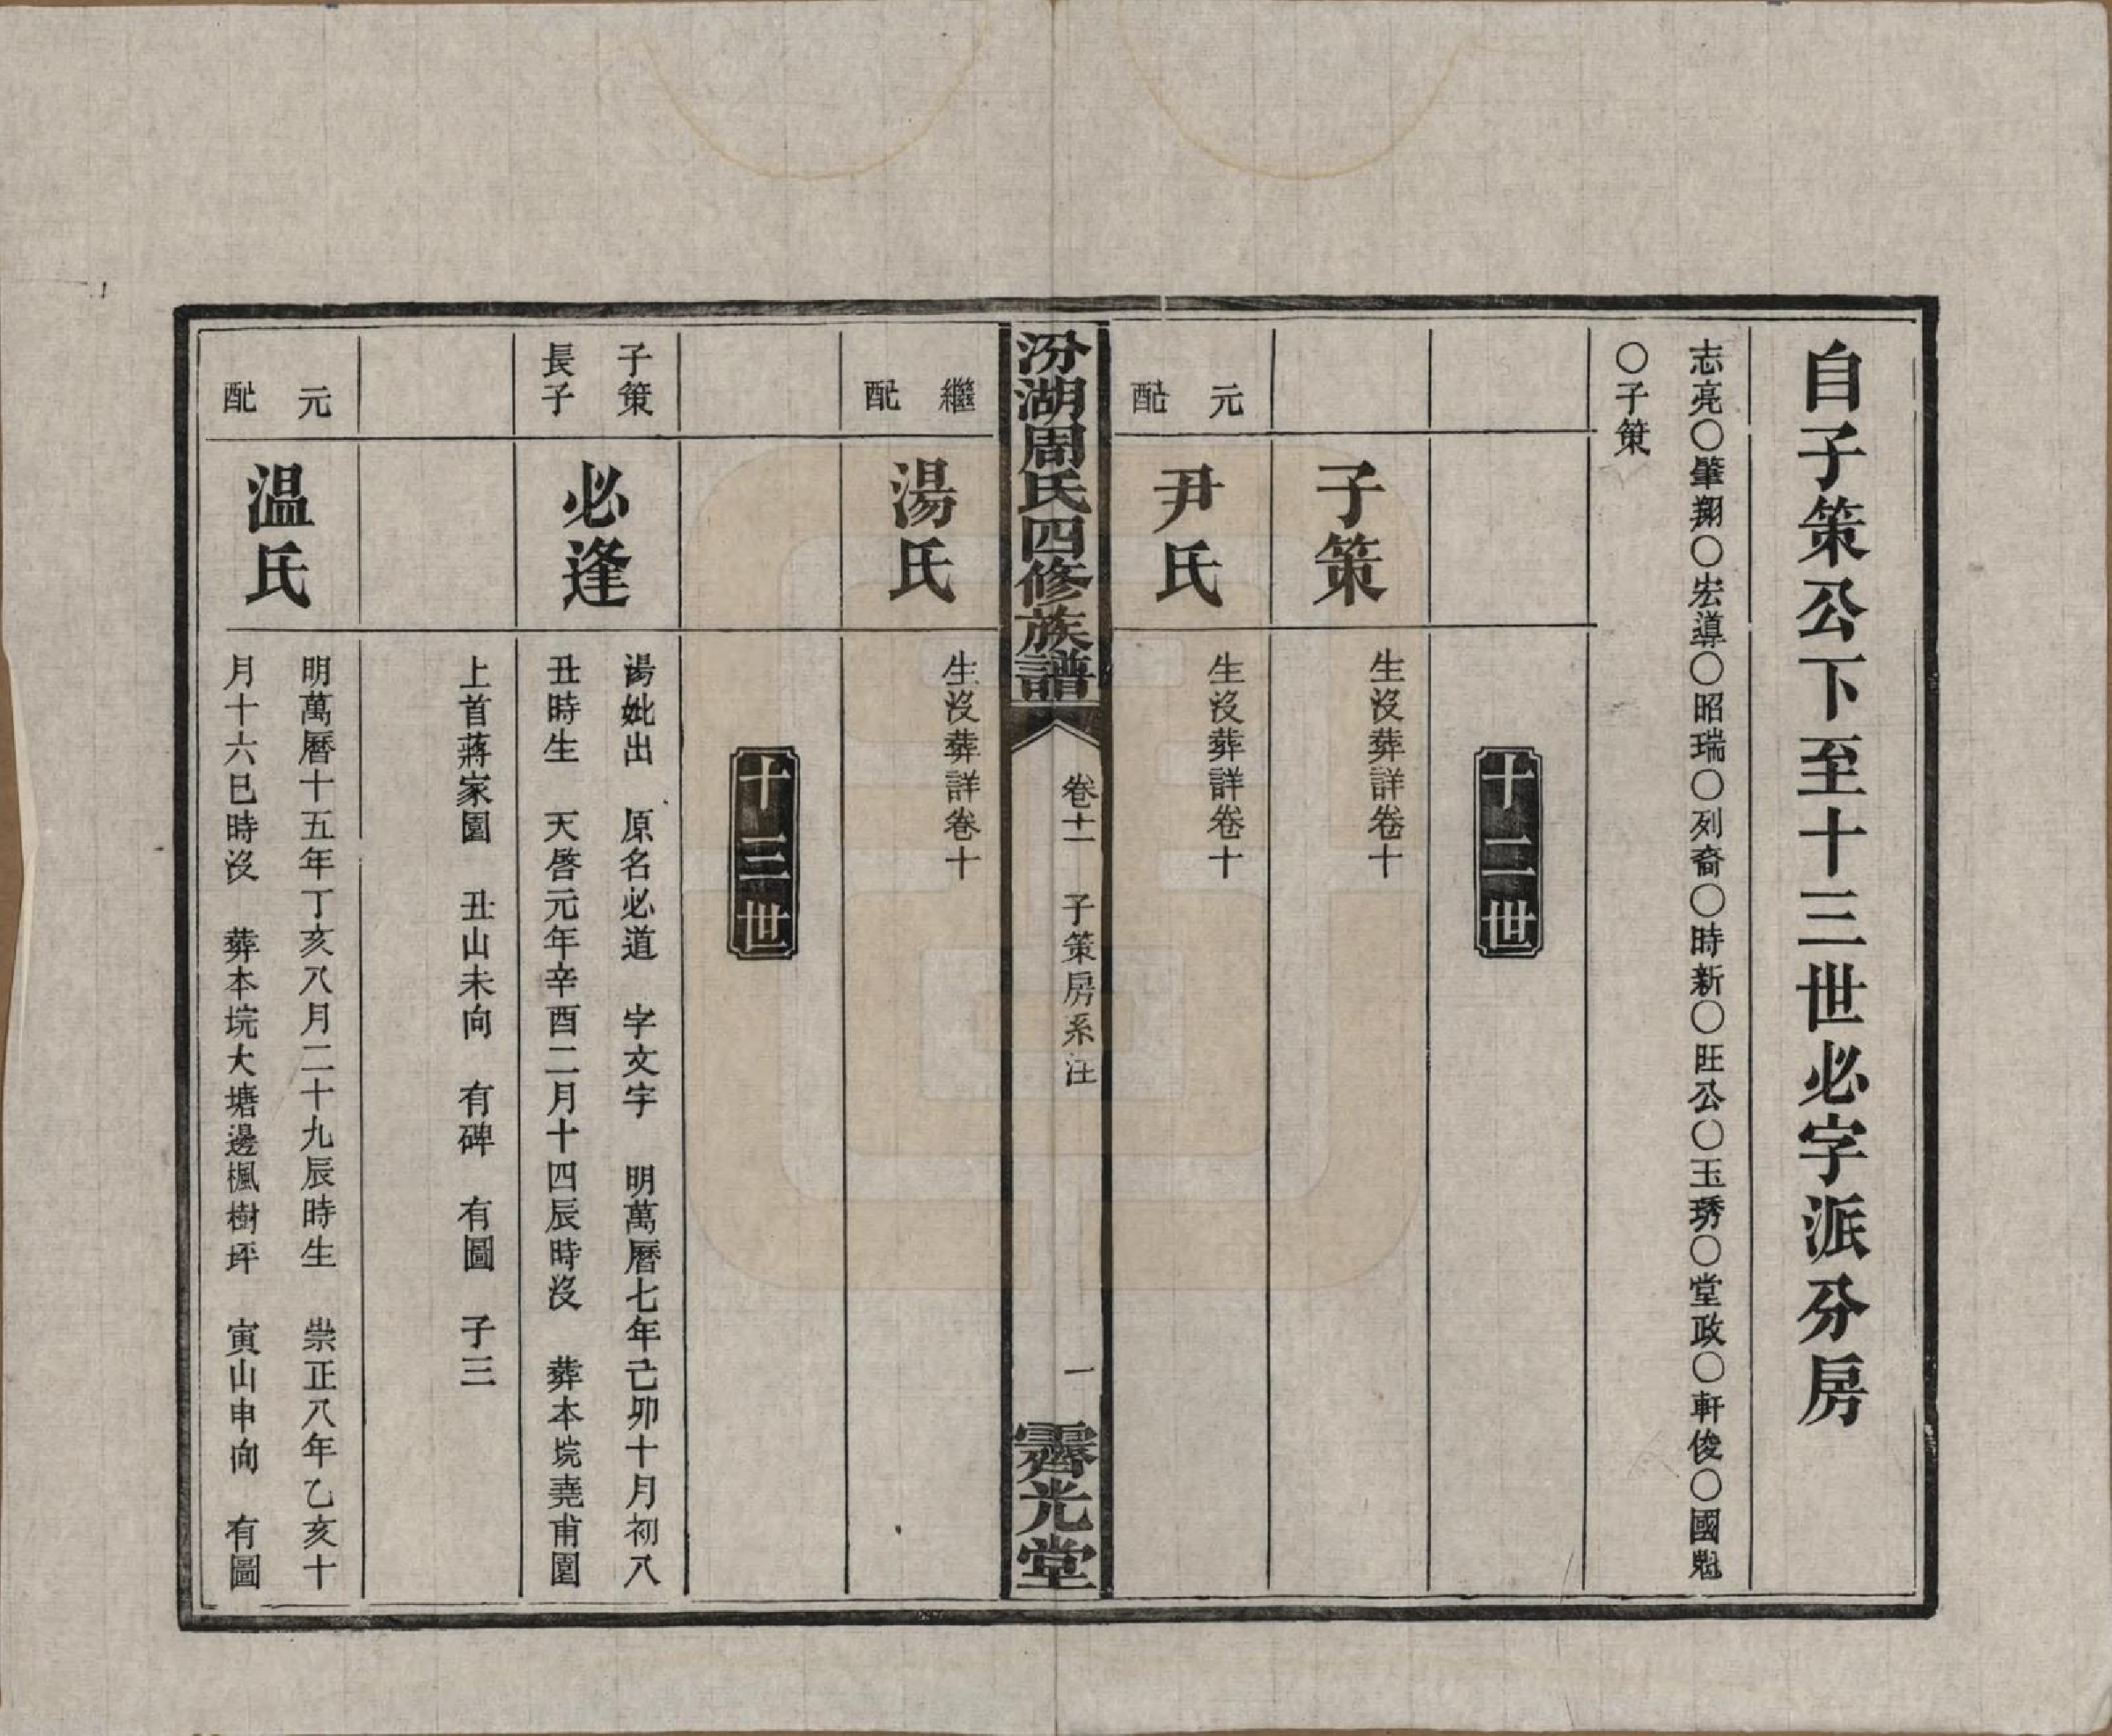 自子策公下至十三世必字派分房
志亮○肇翔○宏導○昭瑞○列裔○時新○旺公○玉琇○堂政○軒俊○國魁
○子策
十二世
子策
生沒葬詳卷十
元配
尹氏
生沒葬詳卷十
汾湖周氏四修族譜
卷十一 子策房系注
一
霽光堂
繼配
湯氏
生沒葬詳卷十
十三世
子策長子
必逢
湯妣出 原名必道 字文宇 明萬曆七年己卯十月初八
丑時生 天啓元年辛酉二月十四辰時沒 葬本垸堯甫園
上首蔣家園 丑山未向 有碑 有圖 子三
元配
温氏
明萬曆十五年丁亥八月二十九辰時生 崇正八年乙亥十
月十六巳時沒 葬本垸大塘邊楓樹坪 寅山申向 有圖